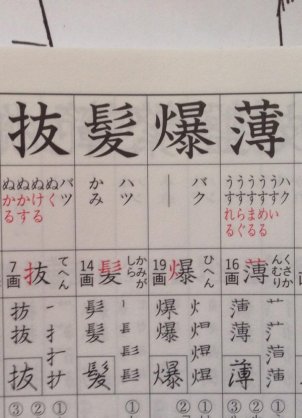 薄
ハク
うすい
うすめる
うすまる
うすらぐ
うすれる
くさかんむり
薄
16画
薄
①
②
③
爆
バク
―
ひへん
爆
19画
爆
①
②
髪
ハツ
かみ
かみがしら
髪
14画
髪
①
抜
バツ
ぬく
ぬける
ぬかす
ぬかる
てへん
抜
7画
抜
①
②
③